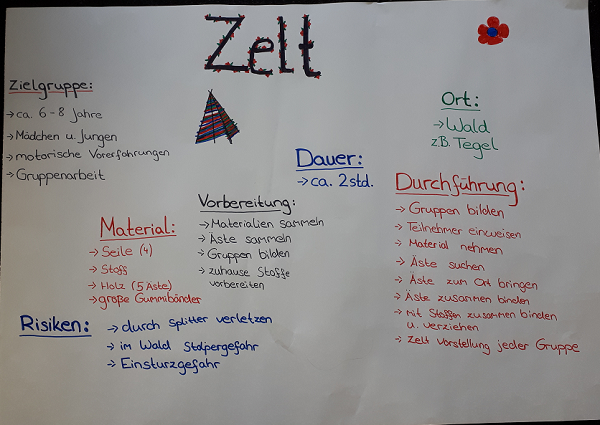 Zelt
Zielgruppe:
→ ca. 6-8 Jahre
→ Mädchen u. Jungen
→ motorische Vorerfahrungen
→ Gruppenarbeit
Ort:
→ Wald
z.B. Tegel
Dauer:
→ ca. 2std.
Vorbereitung:
→ Materialien sammeln
→ Äste sammeln
→ Gruppen bilden
→ zuhause Stoffe
vorbereiten
Material:
→ Seile (4)
→ Stoff
→ Holz (5 Äste)
→ große Gummibänder
Durchführung:
→ Gruppen bilden
→ Teilnehmer einweisen
→ Material nehmen
→ Äste suchen
→ Äste zum Ort bringen
→ Äste zusammen binden
→ mit Stoffen zusammen binden
u. verziehen
→ Zelt Vorstellung jeder Gruppe
Risiken:
→ durch Splitter verletzen
→ im Wald Stolpergefahr
→ Einsturzgefahr